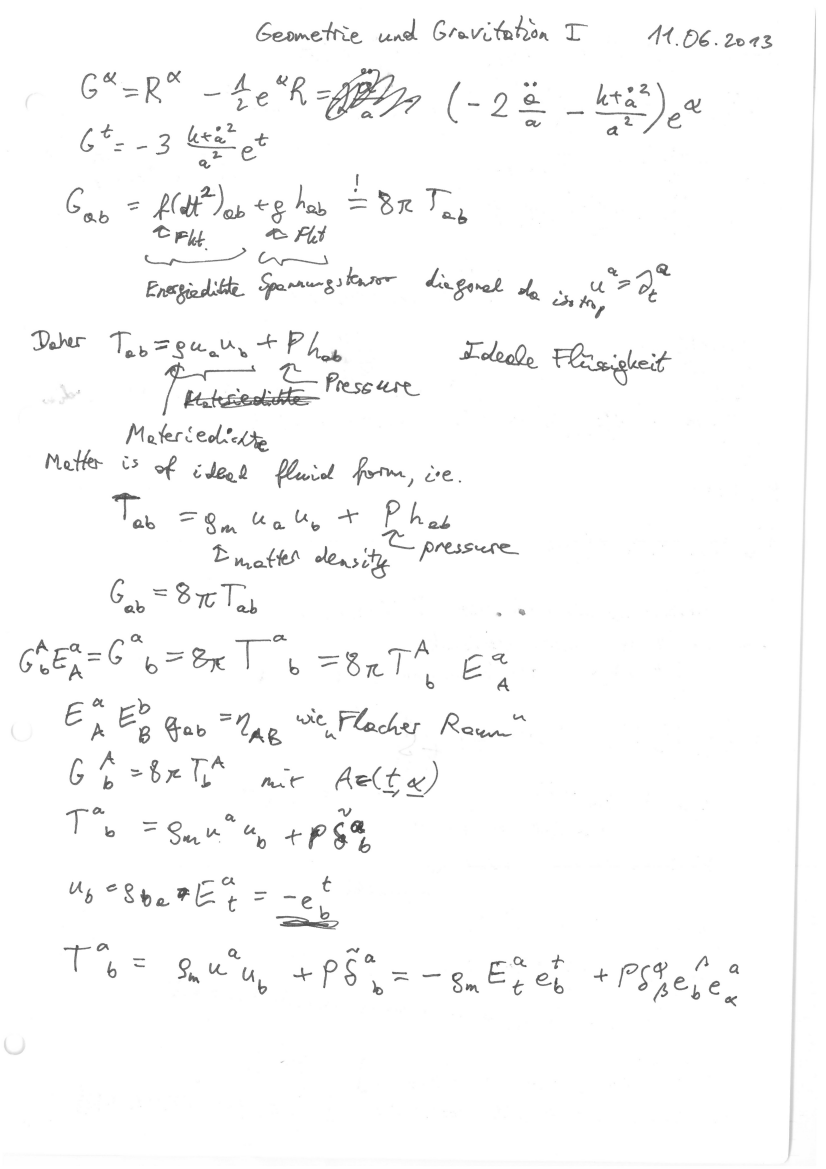 Geometrie und Gravitation I 11.06.2013
G^α = R^α - 1/2 e^α R = (-2 ä/a - (k+ȧ²)/a²) e^α
G^t = -3 (k+ȧ²)/a² e^t
G_ab = f(dt²)_ab + g h_ab =! 8π T_ab
↑Fkt. ↑Fkt
Energiedichte Spannungstensor diagonal da isotrop u^a = ∂_t^a
Daher T_ab = ρ u_a u_b + P h_ab Ideale Flüssigkeit
Pressure
Materiedichte
Materiedichte
Matter is of ideal fluid form, i.e.
T_ab = ρ_m u_a u_b + P h_ab
↑matter density pressure
G_ab = 8π T_ab
G^A_b E^a_A = G^a_b = 8π T^a_b = 8π T^A_b E^a_A
E^a_A E^b_B g_ab = η_AB wie „Flacher Raum"
G^A_b = 8π T^A_b mit A=(t,α)
T^a_b = ρ_m u^a u_b + P δ̃^a_b
u_b = g_ba E^a_t = -e^t_b
T^a_b = ρ_m u^a u_b + P δ̃^a_b = -ρ_m E^a_t e^t_b + P δ^α_β e^β_b e^a_α